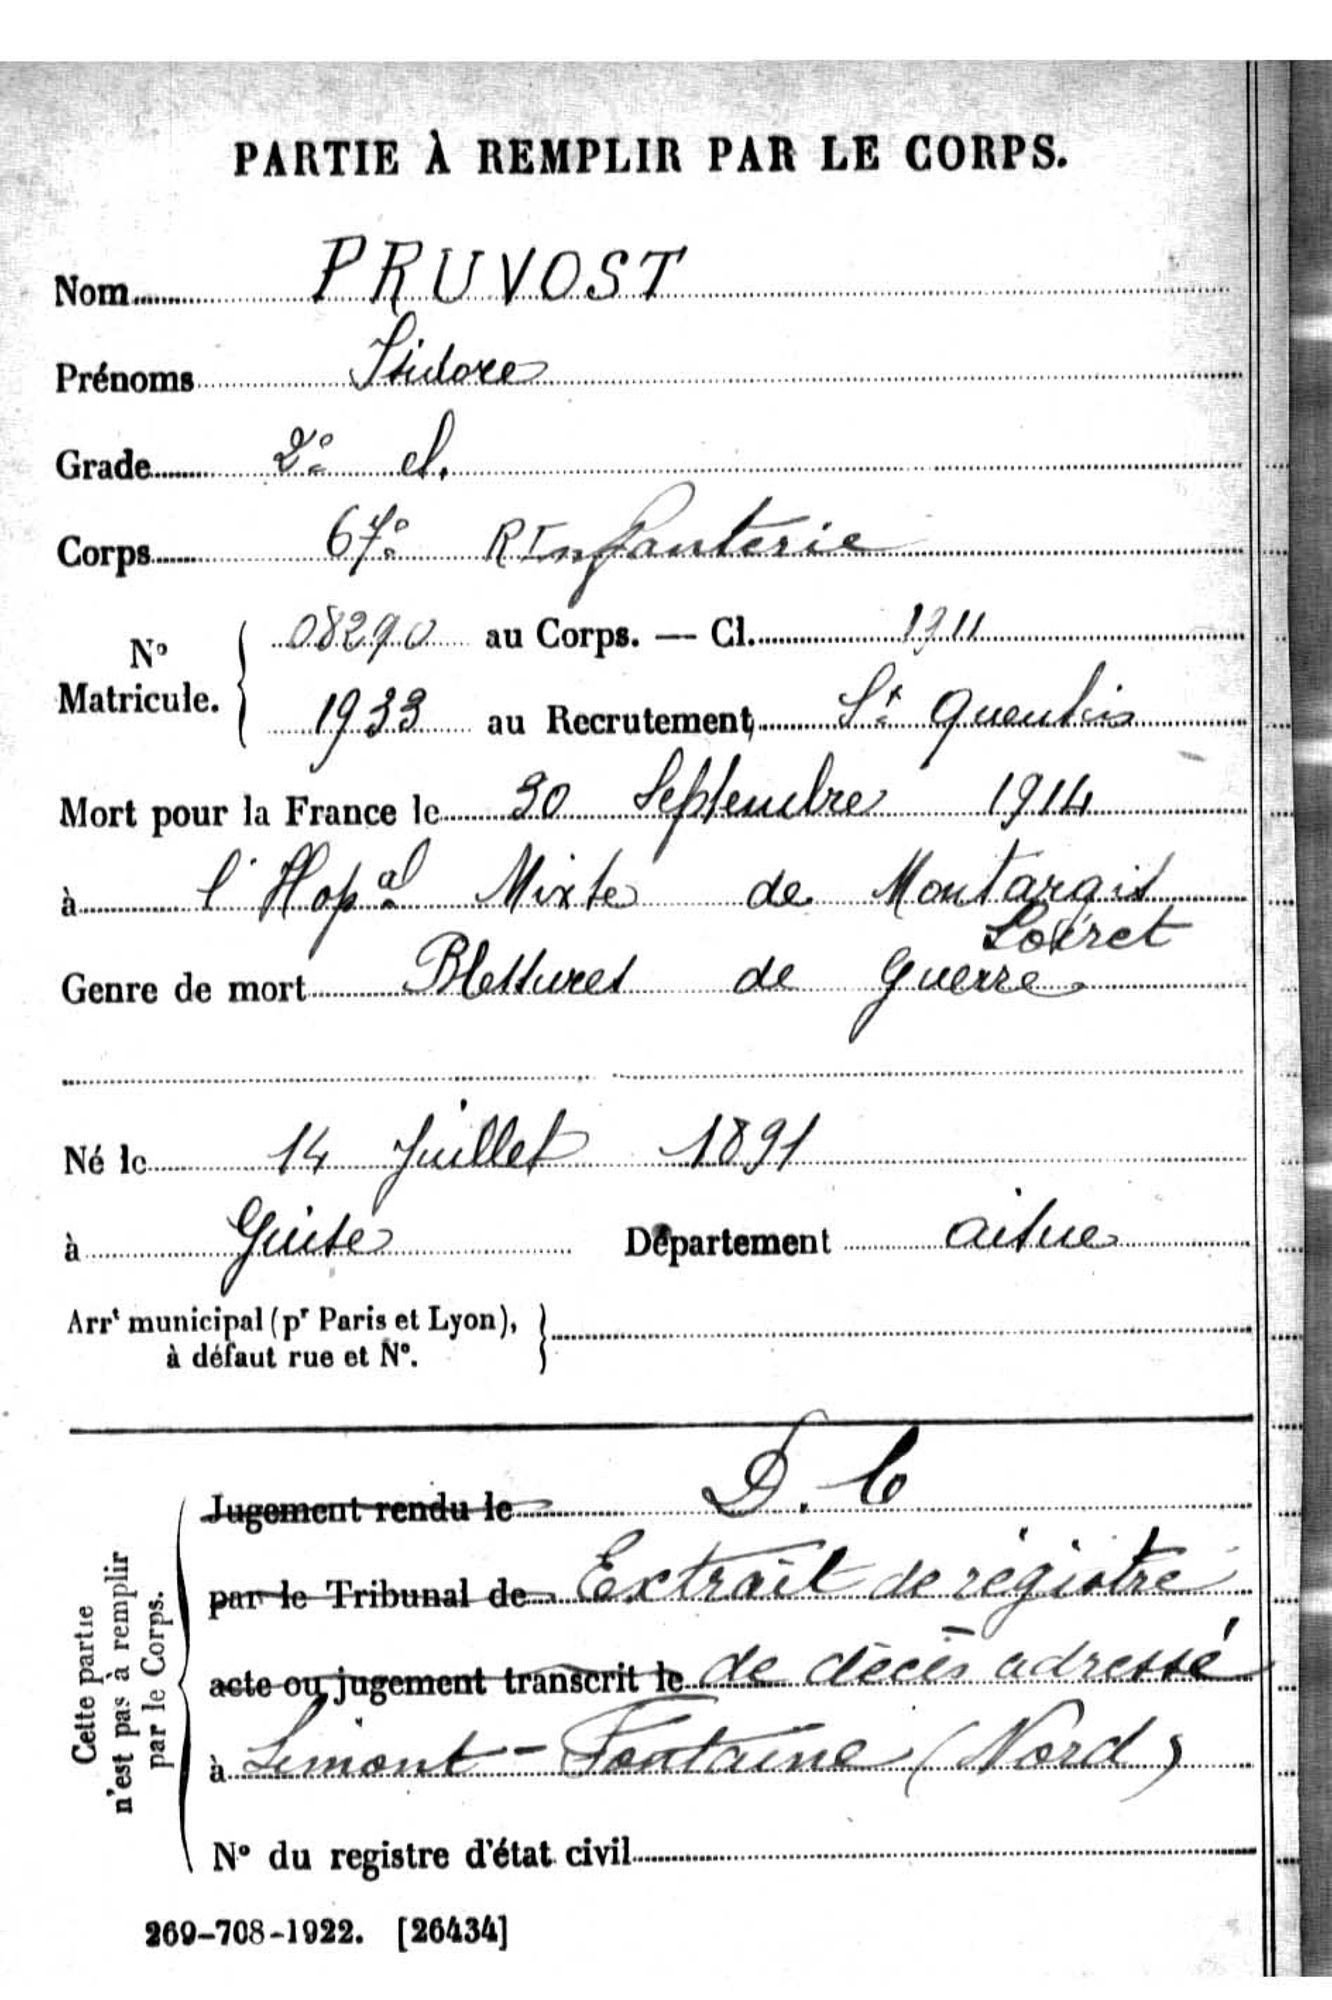 PARTIE À REMPLIR PAR LE CORPS.
Nom PRUVOST
Prénoms Isidore
Grade 2e cl.
Corps 67e R Infanterie
No Matricule. { 08290 au Corps. — Cl. 1911
1933 au Recrutement St Quentin
Mort pour la France le 30 Septembre 1914
à l'Hopal Mixte de Montargis
Loiret
Genre de mort Blessures de Guerre
Né le 14 Juillet 1891
à Guise Département Aisne
Arrt municipal (pr Paris et Lyon),
à défaut rue et No.
Cette partie
n'est pas à remplir
par le Corps.
Jugement rendu le D. C
par le Tribunal de Extrait de régistre
acte ou jugement transcrit le de décès adressé
à Limont-Fontaine (Nord)
No du registre d'état civil
269-708-1922. [26434]